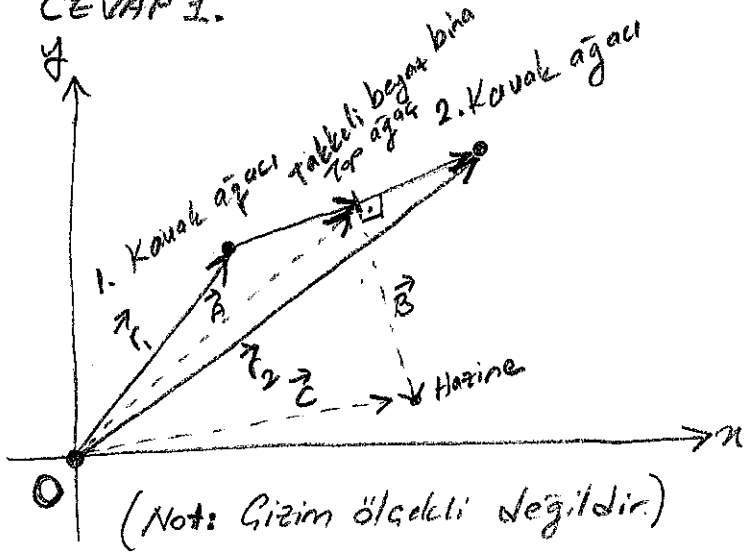 CEVAP 1.
y
1. Kavak ağacı
Takkeli beyaz bina
Top ağaç
2. Kavak ağacı
r₁
A
r₂
B
C
Hazine
x
O
(Not: Çizim ölçekli değildir.)